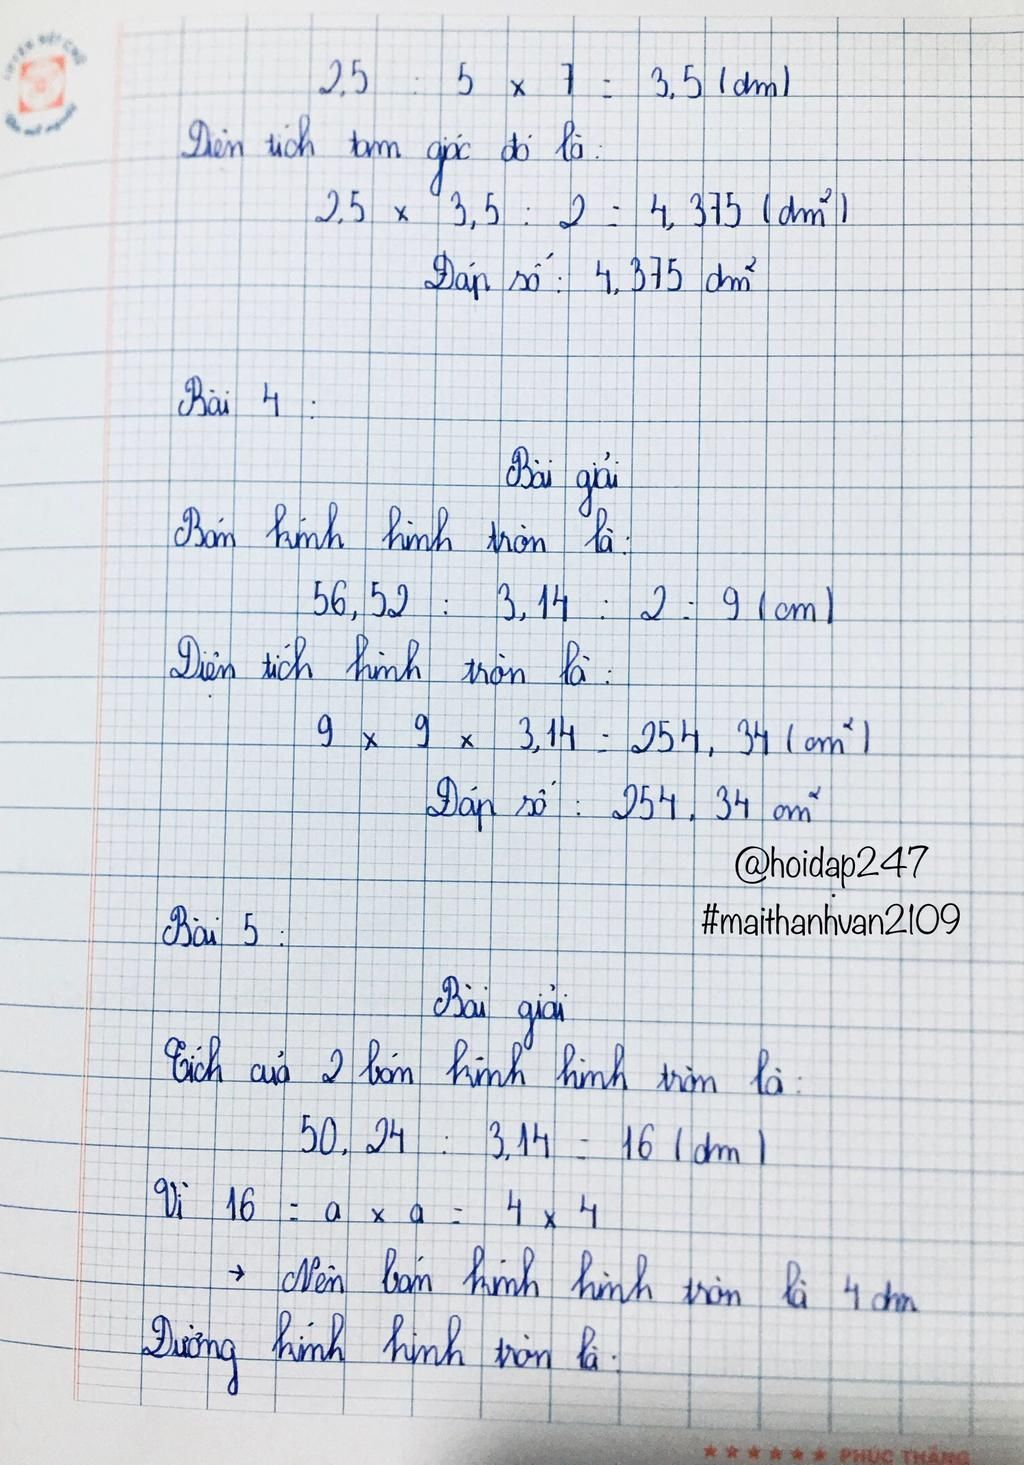 2,5 : 5 x 7 = 3,5 (dm)
Diện tích tam giác đó là:
2,5 x 3,5 : 2 = 4,375 (dm²)
Đáp số: 4,375 dm²
Bài 4 :
Bài giải
Bán kính hình tròn là:
56,52 : 3,14 : 2 = 9 (cm)
Diện tích hình tròn là:
9 x 9 x 3,14 = 254,34 (cm²)
Đáp số: 254,34 cm²
@hoidap247
#maithanhvan2109
Bài 5 :
Bài giải
Tích của 2 bán kính hình tròn là:
50,24 : 3,14 = 16 (dm)
Vì 16 = a x a = 4 x 4
→ Nên bán kính hình tròn là 4 dm
Đường kính hình tròn là:
★★★★★★ PHÚC THẮNG